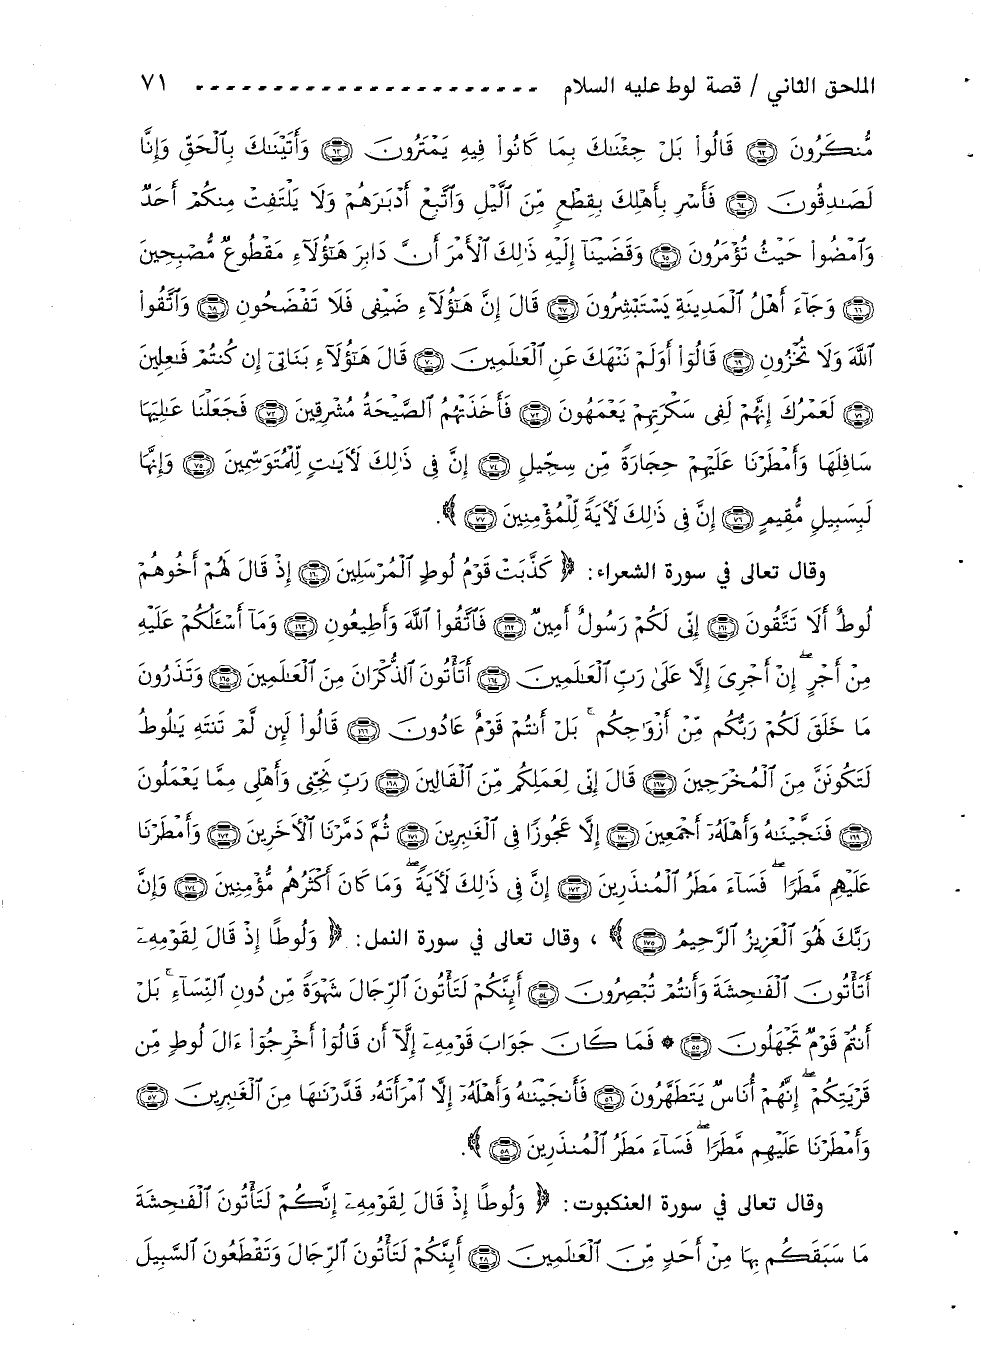 الملحق الثاني / قصة لوط عليه السلام ـ ـ ـ ـ ـ ـ ـ ـ ـ ـ ـ ـ ـ ـ ـ ـ ـ ـ ـ ـ ـ ـ ٧١
مُّنكَرُونَ ﴿٦٢﴾ قَالُوا۟ بَلْ جِئْنَٰكَ بِمَا كَانُوا۟ فِيهِ يَمْتَرُونَ ﴿٦٣﴾ وَأَتَيْنَٰكَ بِٱلْحَقِّ وَإِنَّا
لَصَٰدِقُونَ ﴿٦٤﴾ فَأَسْرِ بِأَهْلِكَ بِقِطْعٍ مِّنَ ٱلَّيْلِ وَٱتَّبِعْ أَدْبَٰرَهُمْ وَلَا يَلْتَفِتْ مِنكُمْ أَحَدٌ
وَٱمْضُوا۟ حَيْثُ تُؤْمَرُونَ ﴿٦٥﴾ وَقَضَيْنَآ إِلَيْهِ ذَٰلِكَ ٱلْأَمْرَ أَنَّ دَابِرَ هَٰٓؤُلَآءِ مَقْطُوعٌ مُّصْبِحِينَ
﴿٦٦﴾ وَجَآءَ أَهْلُ ٱلْمَدِينَةِ يَسْتَبْشِرُونَ ﴿٦٧﴾ قَالَ إِنَّ هَٰٓؤُلَآءِ ضَيْفِى فَلَا تَفْضَحُونِ ﴿٦٨﴾ وَٱتَّقُوا۟
ٱللَّهَ وَلَا تُخْزُونِ ﴿٦٩﴾ قَالُوٓا۟ أَوَلَمْ نَنْهَكَ عَنِ ٱلْعَٰلَمِينَ ﴿٧٠﴾ قَالَ هَٰٓؤُلَآءِ بَنَاتِىٓ إِن كُنتُمْ فَٰعِلِينَ
﴿٧١﴾ لَعَمْرُكَ إِنَّهُمْ لَفِى سَكْرَتِهِمْ يَعْمَهُونَ ﴿٧٢﴾ فَأَخَذَتْهُمُ ٱلصَّيْحَةُ مُشْرِقِينَ ﴿٧٣﴾ فَجَعَلْنَا عَٰلِيَهَا
سَافِلَهَا وَأَمْطَرْنَا عَلَيْهِمْ حِجَارَةً مِّن سِجِّيلٍ ﴿٧٤﴾ إِنَّ فِى ذَٰلِكَ لَءَايَٰتٍ لِّلْمُتَوَسِّمِينَ ﴿٧٥﴾ وَإِنَّهَا
لَبِسَبِيلٍ مُّقِيمٍ ﴿٧٦﴾ إِنَّ فِى ذَٰلِكَ لَءَايَةً لِّلْمُؤْمِنِينَ ﴿٧٧﴾ ﴾.
وقال تعالى في سورة الشعراء: ﴿ كَذَّبَتْ قَوْمُ لُوطٍ ٱلْمُرْسَلِينَ ﴿١٦٠﴾ إِذْ قَالَ لَهُمْ أَخُوهُمْ
لُوطٌ أَلَا تَتَّقُونَ ﴿١٦١﴾ إِنِّى لَكُمْ رَسُولٌ أَمِينٌ ﴿١٦٢﴾ فَٱتَّقُوا۟ ٱللَّهَ وَأَطِيعُونِ ﴿١٦٣﴾ وَمَآ أَسْـَٔلُكُمْ عَلَيْهِ
مِنْ أَجْرٍ ۖ إِنْ أَجْرِىَ إِلَّا عَلَىٰ رَبِّ ٱلْعَٰلَمِينَ ﴿١٦٤﴾ أَتَأْتُونَ ٱلذُّكْرَانَ مِنَ ٱلْعَٰلَمِينَ ﴿١٦٥﴾ وَتَذَرُونَ
مَا خَلَقَ لَكُمْ رَبُّكُم مِّنْ أَزْوَٰجِكُم ۚ بَلْ أَنتُمْ قَوْمٌ عَادُونَ ﴿١٦٦﴾ قَالُوا۟ لَئِن لَّمْ تَنتَهِ يَٰلُوطُ
لَتَكُونَنَّ مِنَ ٱلْمُخْرَجِينَ ﴿١٦٧﴾ قَالَ إِنِّى لِعَمَلِكُم مِّنَ ٱلْقَالِينَ ﴿١٦٨﴾ رَبِّ نَجِّنِى وَأَهْلِى مِمَّا يَعْمَلُونَ
﴿١٦٩﴾ فَنَجَّيْنَٰهُ وَأَهْلَهُۥٓ أَجْمَعِينَ ﴿١٧٠﴾ إِلَّا عَجُوزًا فِى ٱلْغَٰبِرِينَ ﴿١٧١﴾ ثُمَّ دَمَّرْنَا ٱلْءَاخَرِينَ ﴿١٧٢﴾ وَأَمْطَرْنَا
عَلَيْهِم مَّطَرًا ۖ فَسَآءَ مَطَرُ ٱلْمُنذَرِينَ ﴿١٧٣﴾ إِنَّ فِى ذَٰلِكَ لَءَايَةً ۖ وَمَا كَانَ أَكْثَرُهُم مُّؤْمِنِينَ ﴿١٧٤﴾ وَإِنَّ
رَبَّكَ لَهُوَ ٱلْعَزِيزُ ٱلرَّحِيمُ ﴿١٧٥﴾ ﴾ ، وقال تعالى في سورة النمل: ﴿ وَلُوطًا إِذْ قَالَ لِقَوْمِهِۦٓ
أَتَأْتُونَ ٱلْفَٰحِشَةَ وَأَنتُمْ تُبْصِرُونَ ﴿٥٤﴾ أَئِنَّكُمْ لَتَأْتُونَ ٱلرِّجَالَ شَهْوَةً مِّن دُونِ ٱلنِّسَآءِ ۚ بَلْ
أَنتُمْ قَوْمٌ تَجْهَلُونَ ﴿٥٥﴾ * فَمَا كَانَ جَوَابَ قَوْمِهِۦٓ إِلَّآ أَن قَالُوٓا۟ أَخْرِجُوٓا۟ ءَالَ لُوطٍ مِّن
قَرْيَتِكُمْ ۖ إِنَّهُمْ أُنَاسٌ يَتَطَهَّرُونَ ﴿٥٦﴾ فَأَنجَيْنَٰهُ وَأَهْلَهُۥٓ إِلَّا ٱمْرَأَتَهُۥ قَدَّرْنَٰهَا مِنَ ٱلْغَٰبِرِينَ ﴿٥٧﴾
وَأَمْطَرْنَا عَلَيْهِم مَّطَرًا ۖ فَسَآءَ مَطَرُ ٱلْمُنذَرِينَ ﴿٥٨﴾ ﴾.
وقال تعالى في سورة العنكبوت: ﴿ وَلُوطًا إِذْ قَالَ لِقَوْمِهِۦٓ إِنَّكُمْ لَتَأْتُونَ ٱلْفَٰحِشَةَ
مَا سَبَقَكُم بِهَا مِنْ أَحَدٍ مِّنَ ٱلْعَٰلَمِينَ ﴿٢٨﴾ أَئِنَّكُمْ لَتَأْتُونَ ٱلرِّجَالَ وَتَقْطَعُونَ ٱلسَّبِيلَ